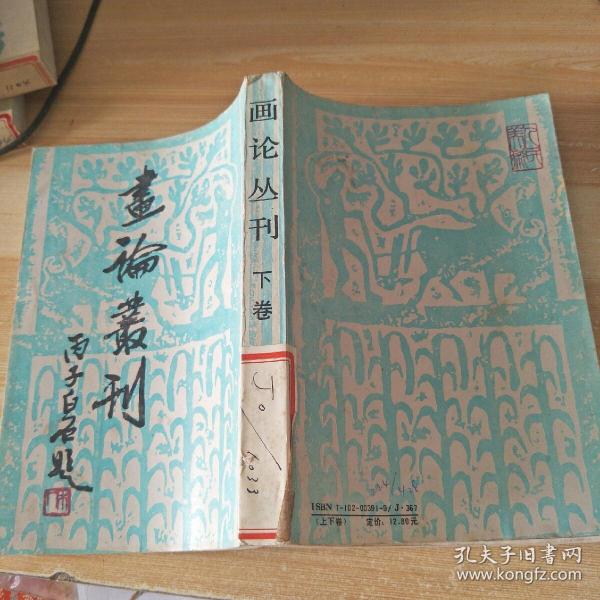 畫論叢刊
丙子白石題
画论丛刊
下卷
J0/
6033
ISBN 7-102-00391-9/J·367
(上下卷) 定价:12.80元
孔夫子旧书网
www.kongfz.com